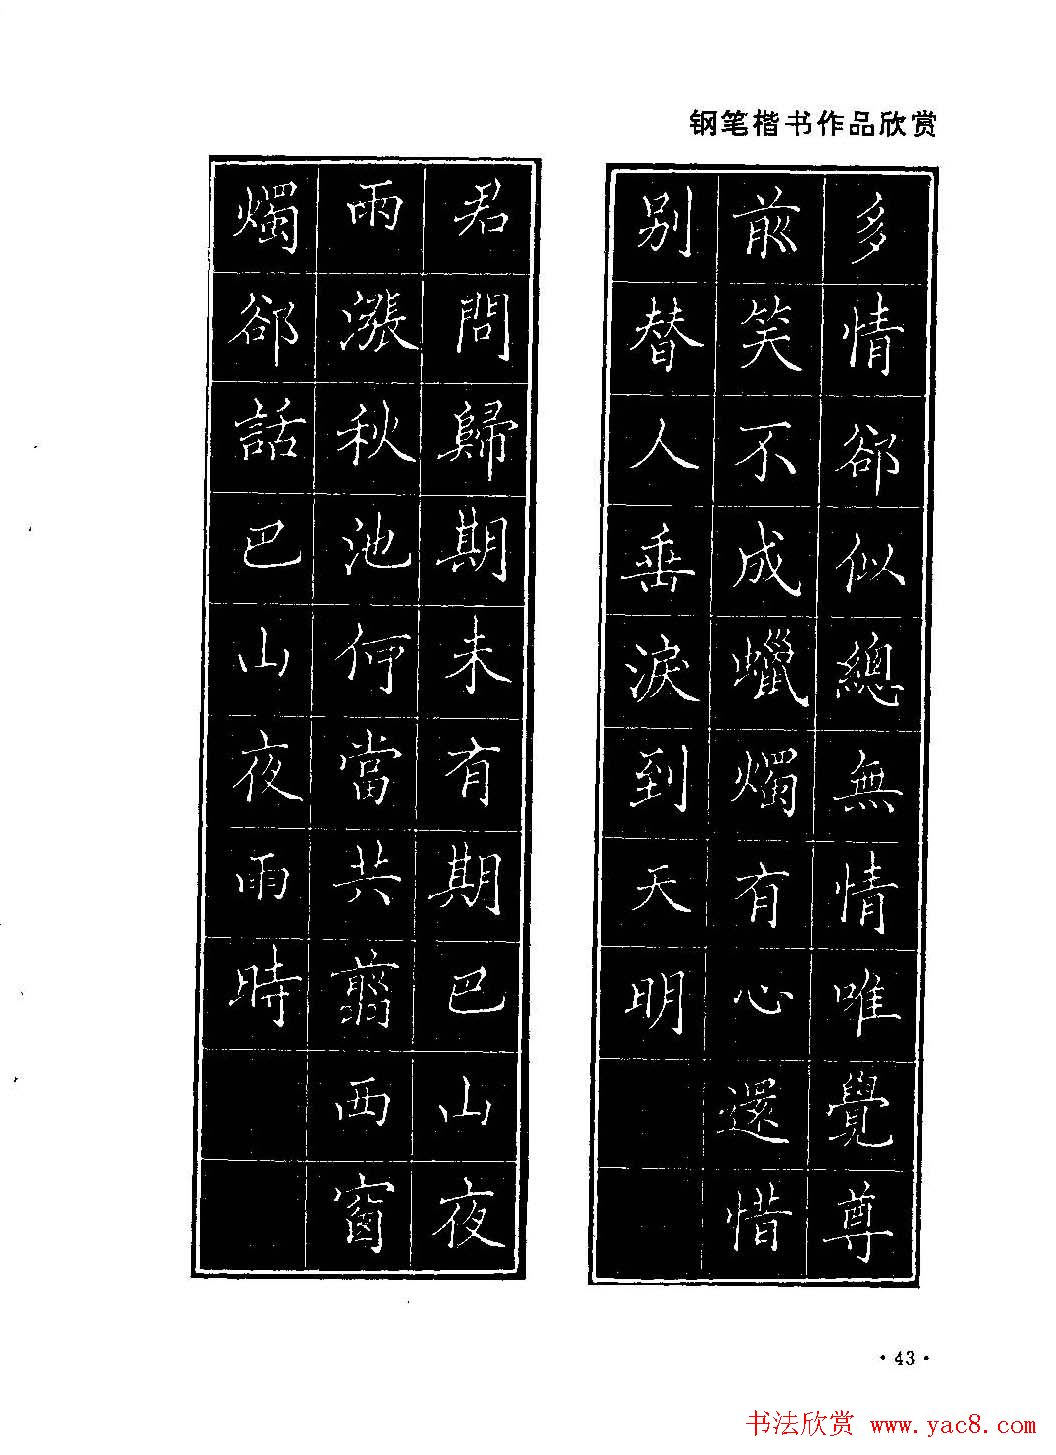 钢笔楷书作品欣赏
多情卻似總無情唯覺尊
前笑不成蠟燭有心還惜
别替人垂淚到天明
君問歸期未有期巴山夜
雨漲秋池何當共翦西窗
燭卻話巴山夜雨時
·43·
书法欣赏 www.yac8.com